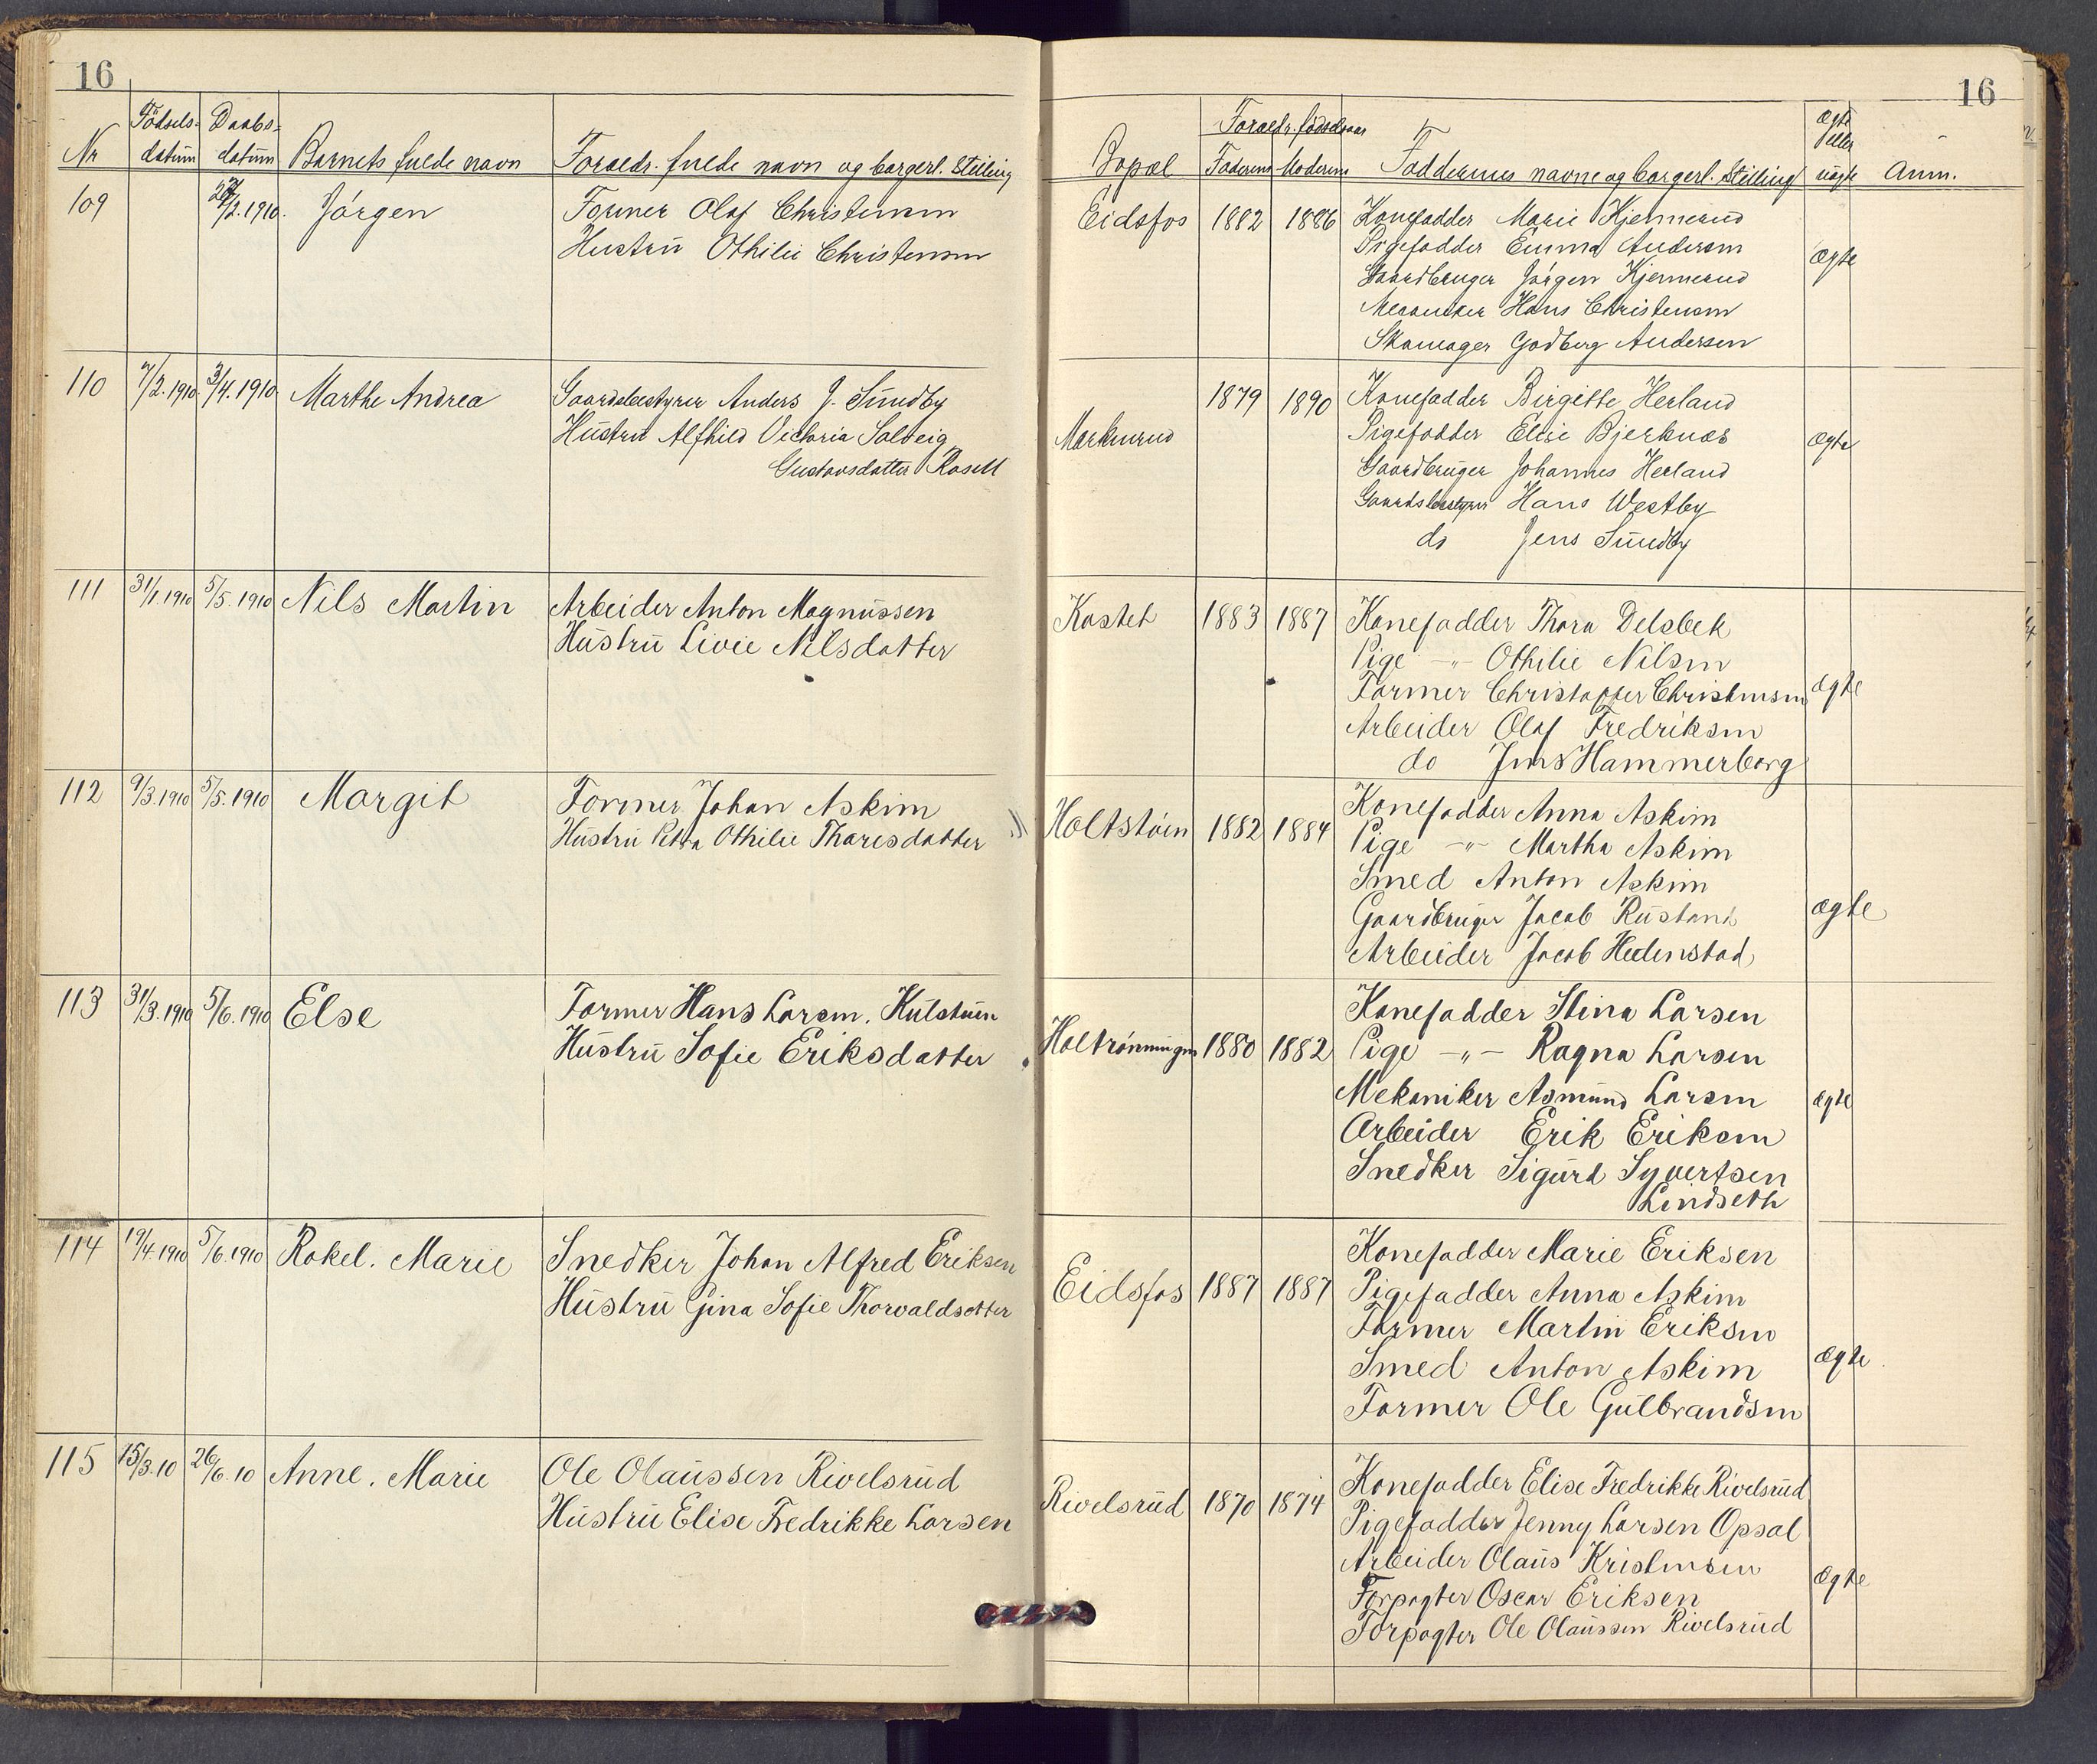 16
Nr
Födsels-
datum
Daabs-
datum
Barnets fulde navn
Foraeldr. fulde navn og borgerl. Stilling
109
/2.1910.
Jörgen
Former Olaf Christensen
Hustrü Othilie Christensen
110
7/2.1910
3/4.1910
Marthe Andrea
Gaardsbestyrer Anders J. Sündby
Hüstrü Alfhild Victoria Solveig
Gustavsdatter Rosell
111
31/1.1910
5/5.1910
Nils Martin
Arbeider Anton Magnüssen
Hüstrü Livie Nilsdatter
112
9/3.1910
5/5.1910
Margit
Former Johan Askim
Hüstrü Petra Othilie Tharesdatter
113
31/3.1910
5/6.1910
Else
Former Hans Larsen. Kulstüen
Hüstrü Sofie Eriksdatter
114
19/4.1910
5/6.1910
Rakel. Marie
Snedker Johan Alfred Eriksen
Hüstrü Gina Sofie Thorvaldsdatter
115
15/3.10
26/6.10
Anne. Marie
Ole Olaüssen Rivelsrüd
Hüstrü Elise Fredrikke Larsen
16
Bopæl
Foraeldr. födselsaar
Faderens
Moderens
Faddernes navne og borgerl. Stilling
Ægte
eller
uægte
Anm.
Eidsfos
1882
1886
Konefadder Marie Kjennerud
Pigefadder Emma Andersen
Gaardbruger Jörgen Kjennerud
Hans Christensen
Skomager Godberg Andersen
Ægte
Markurud
1879
1890
Konefadder Birgitte Herland
Pigefadder Elise Bjerknæs
Gaardbrüger Johannes Herland
Gaardsbestyrer Hans Westby
do Jens Sündby
Ægte
Kastet
1883
1887
Konefadder Thora Delsbek
Pige -"- Othilie Nilsen
Former Christoffer Christensen
Arbeider Olaf Fredriksen
do Jens Hammerborg
Ægte
Holtstüen
1882
1884
Konefadder Anna Askim
Pige -"- Martha Askim
Smed Anton Askim
Gaardbrüger Jacob Rüstand
Arbeider Jacob Hedenstad
ægte
Holtrönningen
1880
1882
Konefadder Stina Larsen
Pige -"- Ragna Larsen
Mekaniker Asmünd Larsen
Arbeider Erik Eriksen
Snedker Sigürd Syvertsen
Lindseth
ægte
Eidsfos
1887
1887
Konefadder Marie Eriksen
Pigefadder Anna Askim
Former Martin Eriksen
Smed Anton Askim
Former Ole Gülbrandsen
Ægte
Rivelsrüd
1870
1874
Konefadder Elise Fredrikke Rivelsrüd
Pigefadder Jenny Larsen Opsal
Arbeider Olaüs Kristensen
Forpagter Oscar Eriksen
Forpagter Ole Olaüssen Rivelsrüd
Ægte